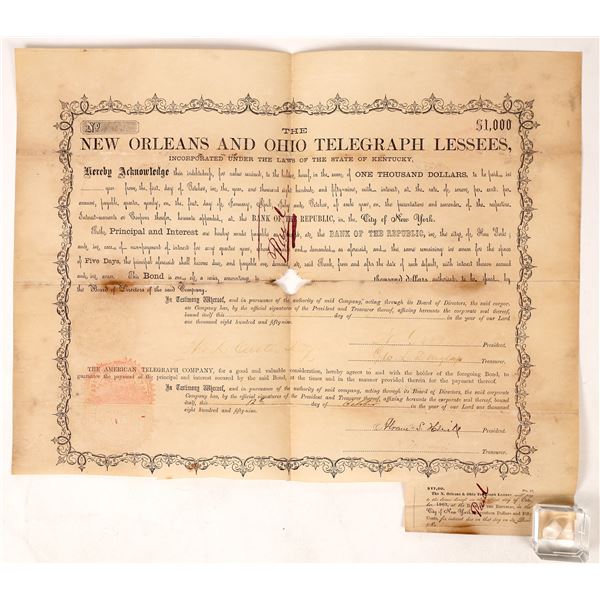 No
$1,000
THE
NEW ORLEANS AND OHIO TELEGRAPH LESSEES,
INCORPORATED UNDER THE LAWS OF THE STATE OF KENTUCKY,
Hereby Acknowledge this indebtedness, for value received, to the holder, hereof, in the sum, of ONE THOUSAND DOLLARS. to be paid, in
year from, the first day of October, in, the, year, one thousand, eight hundred, and fifty-nine, with interest, at the, rate, of seven, per cent. per
annum, payable, quarter yearly, on, the first day of January,
of each year, on, the presentation and surrender of the, respective,
Interest-warrants or Coupons thereto, hereunto appended, at the BANK OF THE REPUBLIC, in the City of New York.
Both, Principal and Interest are hereby made payable
at, the BANK OF THE REPUBLIC, in, the, city, of New York;
and, in, case, of non-payment of interest for any quarter year,
and demanded, as aforesaid, and, the, same remaining, in, arrear for the, space
of Five Days, the principal aforesaid shall become due, and payable, on, demand, at, said Bank, from, and after the, date, of such, default, with, interest thereon
This Bond is one, of a series, amounting to
thousand dollars authorized, to, be, issued, by,
the, Board, of Directors, of the said, Company.
In Testimony Whereof, and in pursuance of the authority of said Company, acting through its Board of Directors, the said corpor-
ate Company has, by the official signatures of the President and Treasurer thereof, affixing hereunto the corporate seal thereof,
bound itself this day of in the year of our Lord
one thousand eight hundred and fifty-nine.
President.
Geo. L. Douglass
Treasurer.
THE AMERICAN TELEGRAPH COMPANY, for a good and valuable consideration, hereby agrees to and with the holder of the foregoing Bond, to
guarantee the payment of the principal and interest secured by the said Bond, at the times and in the manner provided therein for the payment thereof.
In Testimony Whereof, and in pursuance of the authority of said Company, acting through its Board of Directors, the said corporate
Company has, by the official signatures of the President and Treasurer thereof, affixing hereunto the corporate seal thereof, bound
itself, this 12th day of October in the year of our Lord one thousand
eight hundred and fifty-nine.
President.
Treasurer.
Paid
$17,50.
The N. Orleans & Ohio Telegraph Lessees
1863, at the BANK OF THE REPUBLIC, in the
City of New York, Seventeen Dollars and Fifty
Cents, for interest due on that day on
Paid